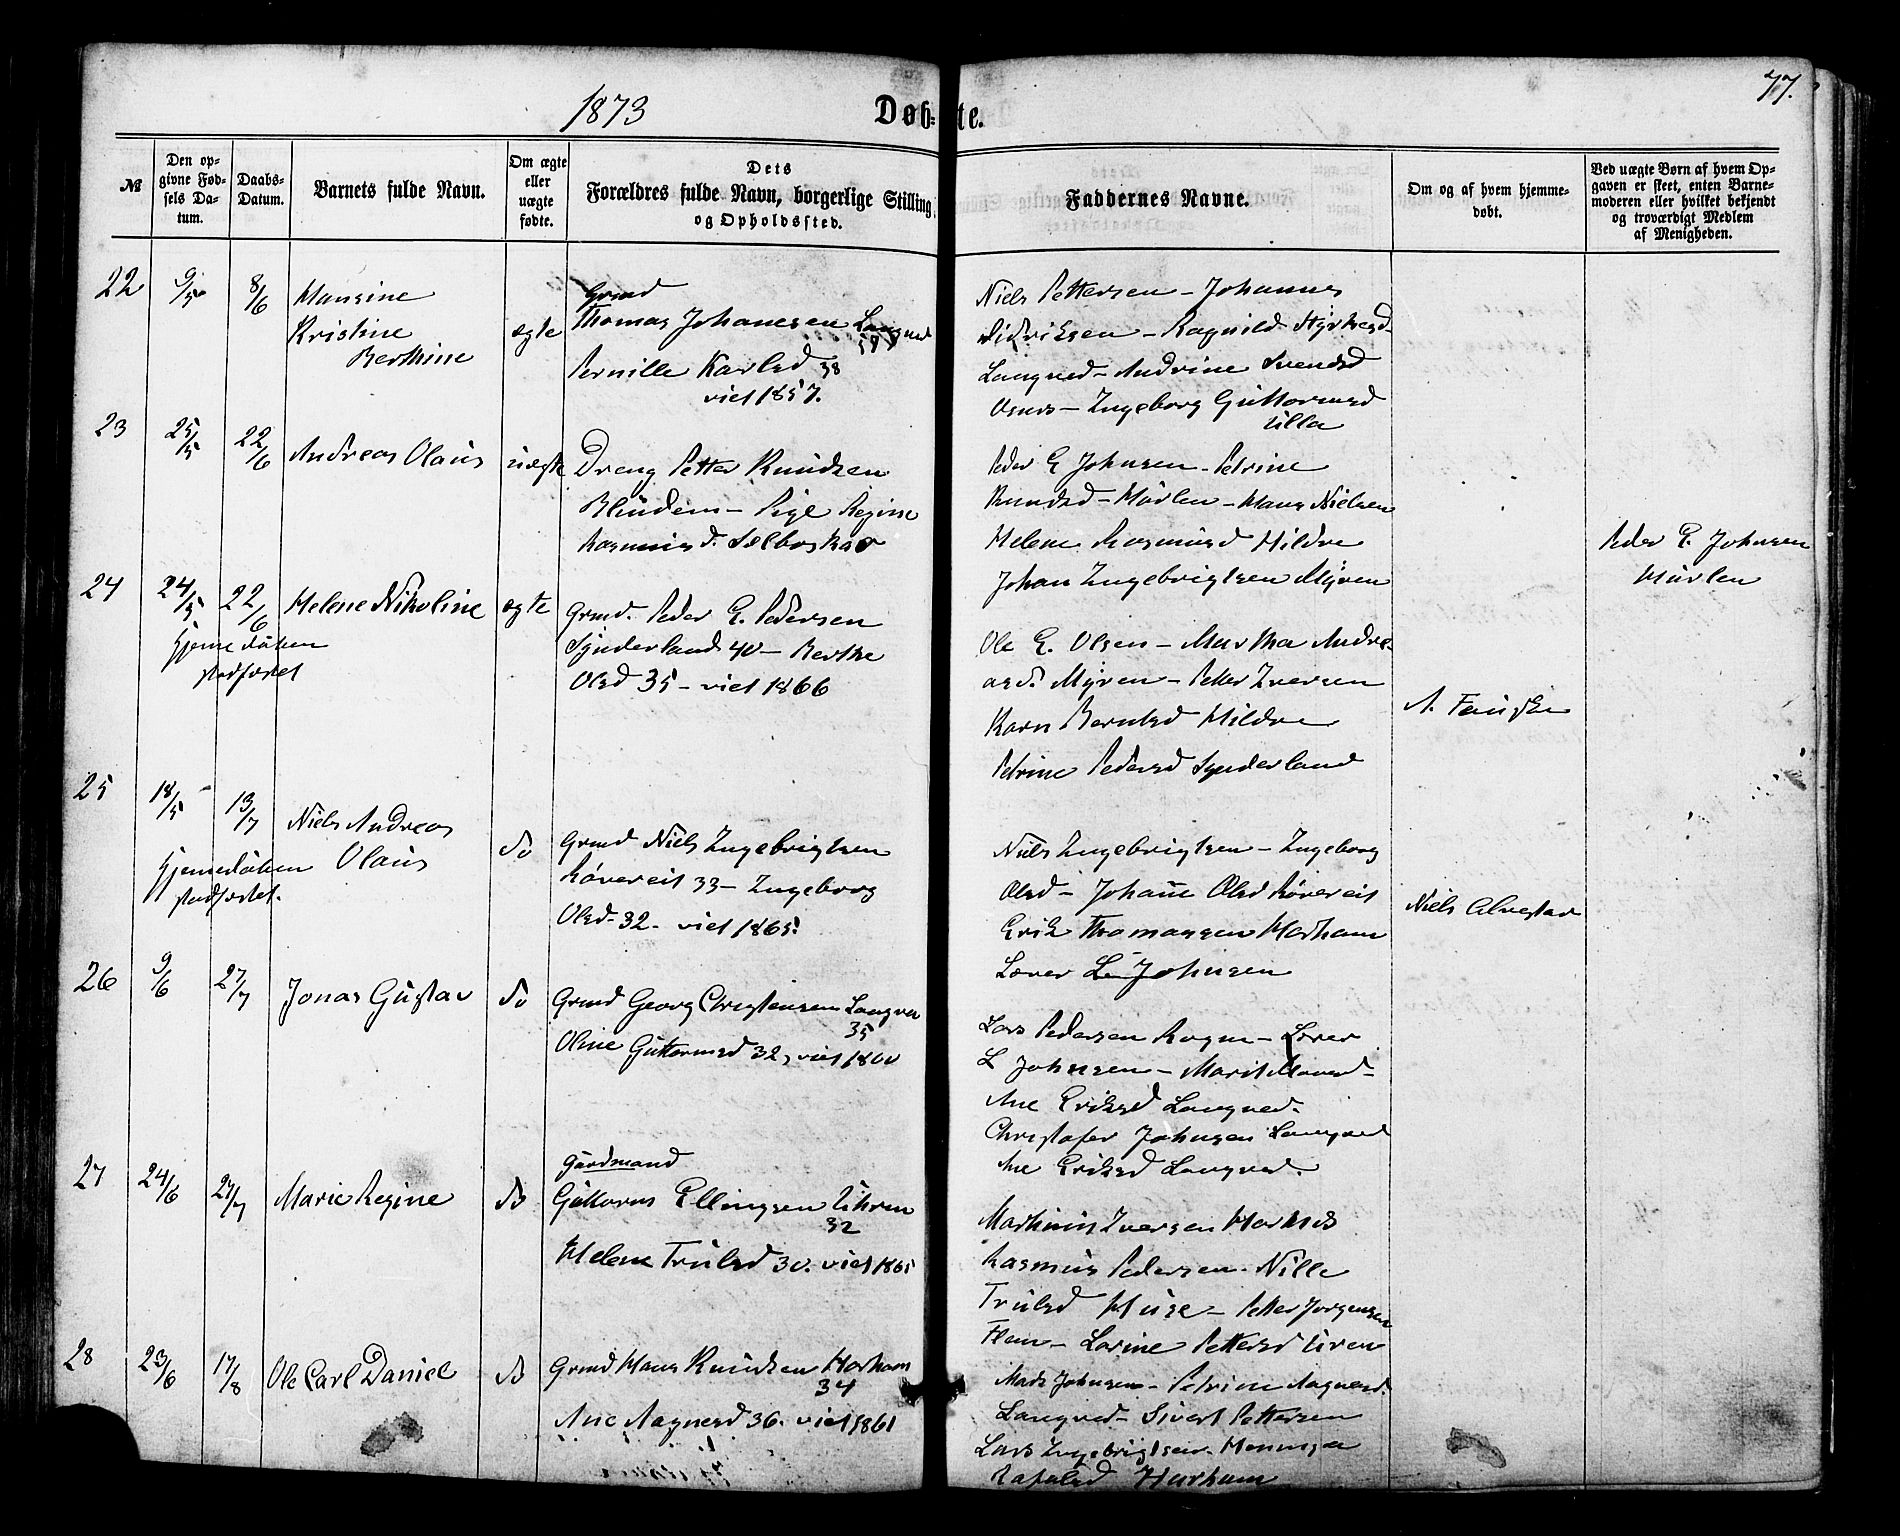 1873
Døb-
te.
77.
№
Den op-
givne Fød-
sels Da-
tum.
Daabs-
Datum.
Barnets fulde Navn.
Om ægte
eller
uægte
fødte.
Dets
Forældres fulde Navn, borgerlige Stilling
og Opholdssted.
Faddernes Navne.
Om og af hvem hjemme-
døbt.
Ved uægte Børn af hvem Op-
gaven er skeet, enten Barne-
moderen eller hvilket bekjendt
og troværdigt Medlem
af Menigheden.
22
9/5
8/6
Hansine
Kristine
Berthine
ægte
Grmd
Thomas Johanesen Longved
Pernille Karlsd 38
viet 1857.
Niels Pettersen – Johannes
Didriksen – Ragnild Styrkesd
Longved – Andrine Svendsd
Ingeborg Guttormsd
Ulla
23
25/5
22/6
Andreas Olaus
uægte
Dreng Petter Knudsen
Blindem – Pige Regine
Rasmusd.
Peder E Johnsen – Petrine
Knudsd – Hurlen – Hans Nielsen
Helene Rasmusd Hildre
Johan Ingebrigtsen Myren
Peder E. Johnsen
Hurlen
24
24/5
22/6
Hjemedåben
stadfæstet
Helene Nikoline
ægte
Grmd. Peder E. Pedersen
Synderland 40 – Berthe
Olsd 35 – viet 1866
Ole E. Olsen – Martha Andre-
asd. Myren – Petter Iversen
Karn Berntsd Hildre
Petrine Pedersd Synderland
A. Fauske
25
18/5
13/7
Hjemedåben
stadfæstet.
Niels Andreas
Olaus
do
Grmd Niels Ingebrigtsen
Røvereit 33 – Ingeborg
Olsd – 32. viet 1865.
Niels Ingebrigtsen – Ingeborg
Olsd – Johane Olsd Røvereit
Erik Thomassen Harham
Lærer L. Johnsen
Niels Alvestav
26
9/6
27/7
Jonas Gustav
do
Grmd Georg Christensen Longva
35
Oline Guttormsd 32, viet 1860
Lars Pedersen Rogne – Lærer
L Johnsen – Marit
Ane Eriksd Longved.
Christofer Johnsen Longved
Ane Eriksd Longved.
27
24/6
27/7
Marie Regine
do
Gårdmand
Guttorm Ellingsen Uhren
32
Helene Trulsd 30. viet 1865
Marthinus Iversen
Rasmus Pedersen – Nille
Trulsd Huse – Petter Jørgensen
Flem – Lovine Pettersd Uren
28
23/6
17/8
Ole Carl Daniel
do
Grmd Hans Knudsen Harham
34
Ane Aagnesd 36. viet 1861
Mads Johnsen – Petrine Aagnesd.
Longved – Sivert Pettersen
Lars Ingebrigtsen
Rafaelsd Harham